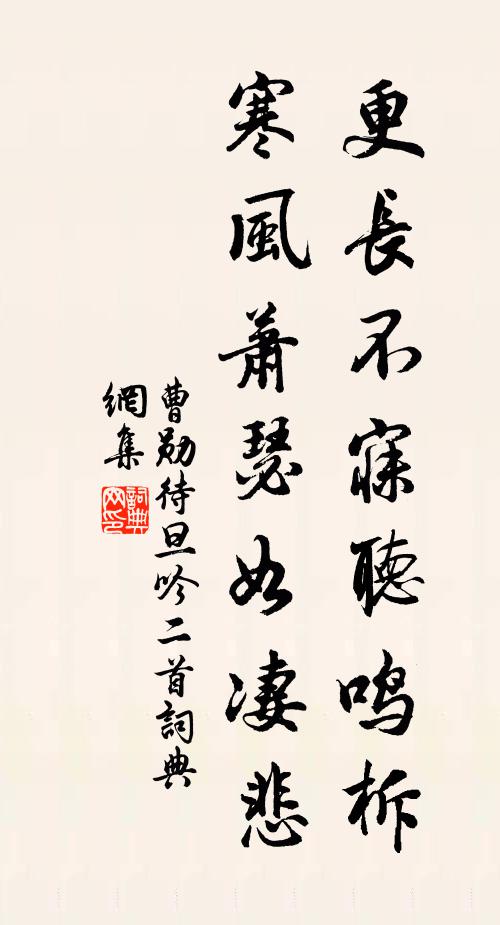 更長不寐聽鳴柝
寒風蕭瑟如凄悲
曹勛待旦吟二首詞典
網集
詞典網印